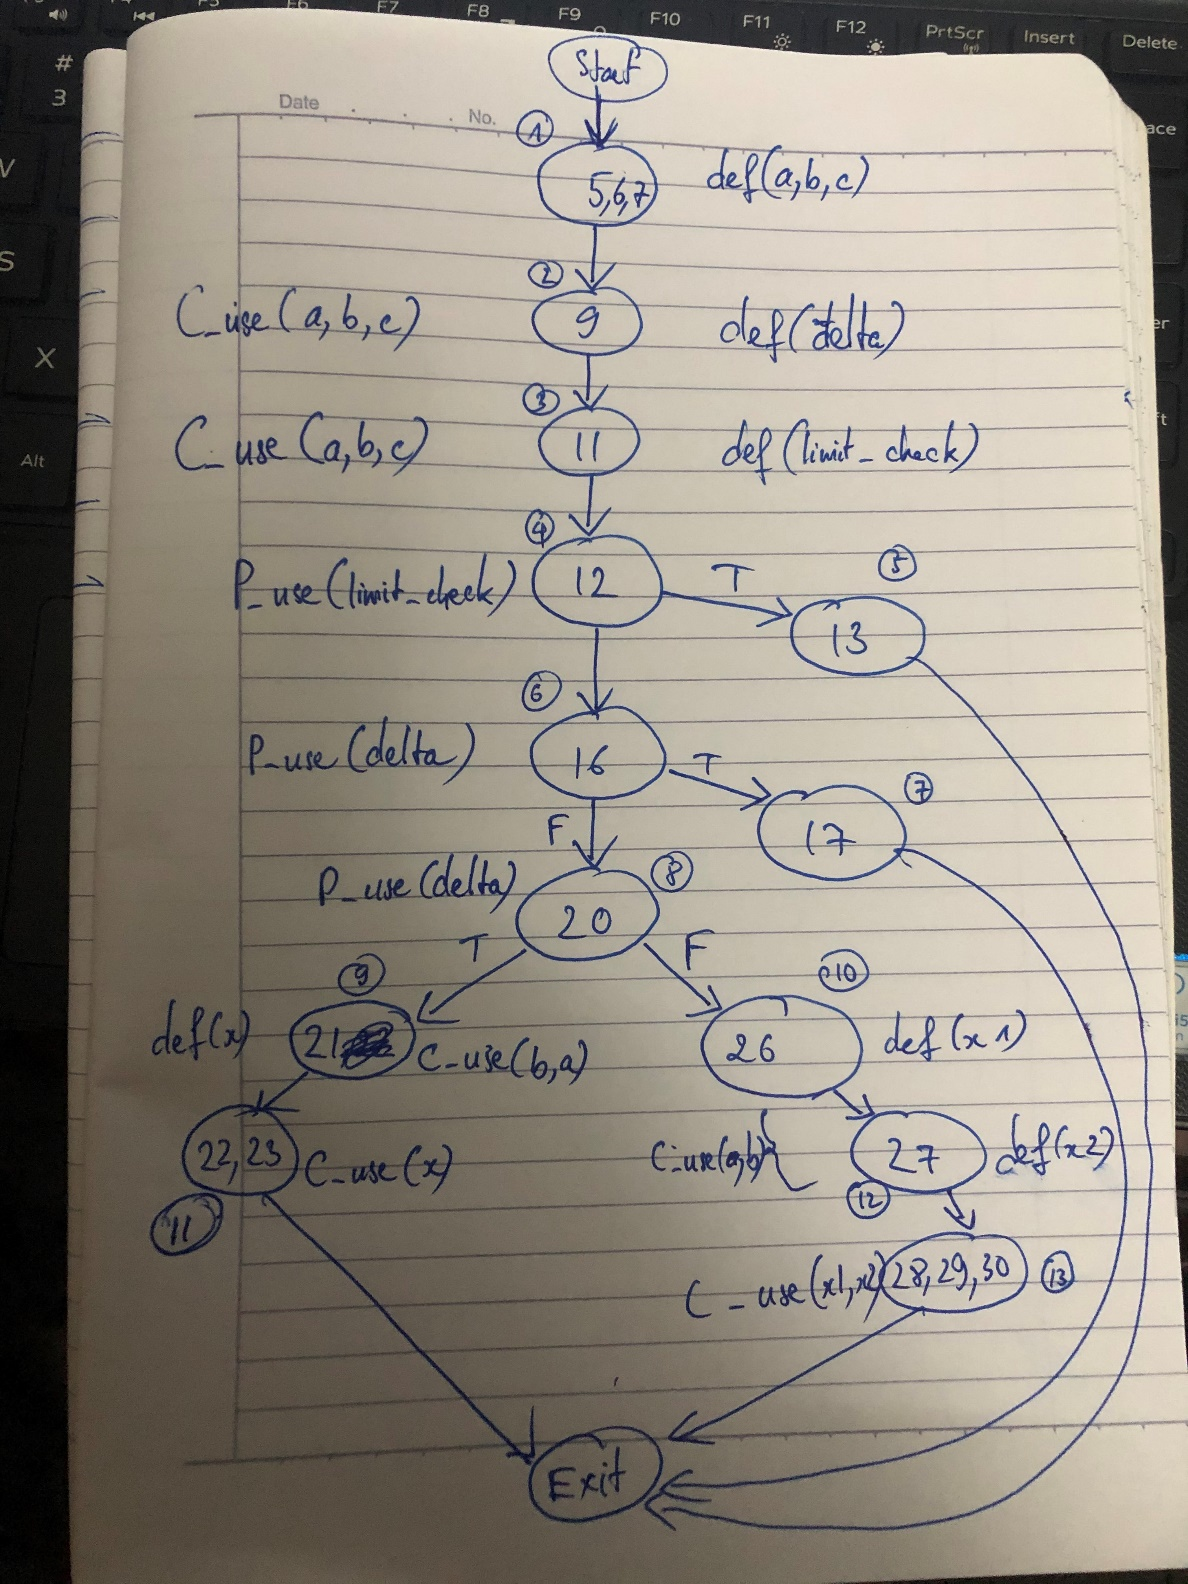 F6 F7 F8 F9 F10 F11 F12 PrtScr Insert Delete
#
3
Start
Date No.
1
5,6,7 def(a,b,c)
2
C_use(a,b,c) 9 def(delta)
3
C_use(a,b,c) 11 def(limit_check)
Alt
4
P_use(limit_check) 12 T 5
13
6
P_use(delta) 16 T 7
17
F
P_use(delta) 8
20
T F
9 10
def(x) 21 C_use(b,a) 26 def(x1)
22,23 C_use(x) C_use(a,b) 27 def(x2)
11 12
C_use(x1,x2) 28,29,30 13
Exit
X
S